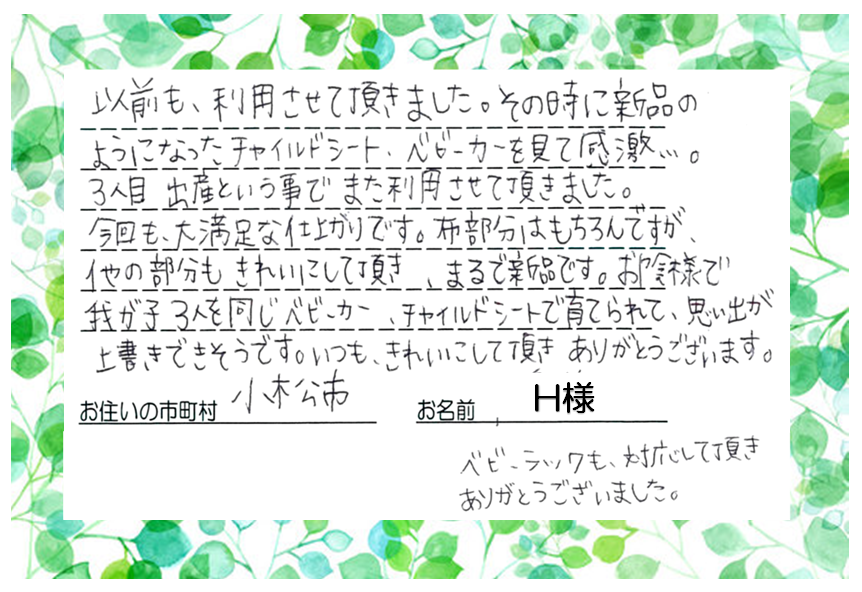 以前も、利用させて頂きました。その時に新品の
ようになったチャイルドシート、ベビーカーを見て感激…。
3人目 出産という事で また利用させて頂きました。
今回も、大満足な仕上がりです。布部分はもちろんですが、
他の部分も きれいにして頂き、まるで新品です。お陰様で
我が子 3人を同じベビーカー、チャイルドシートで育てられて、思い出が
上書きできそうです。いつも、きれいにして頂き ありがとうございます。
お住いの市町村 小松市 お名前 H様
ベビーラックも、対応して頂き
ありがとうございました。